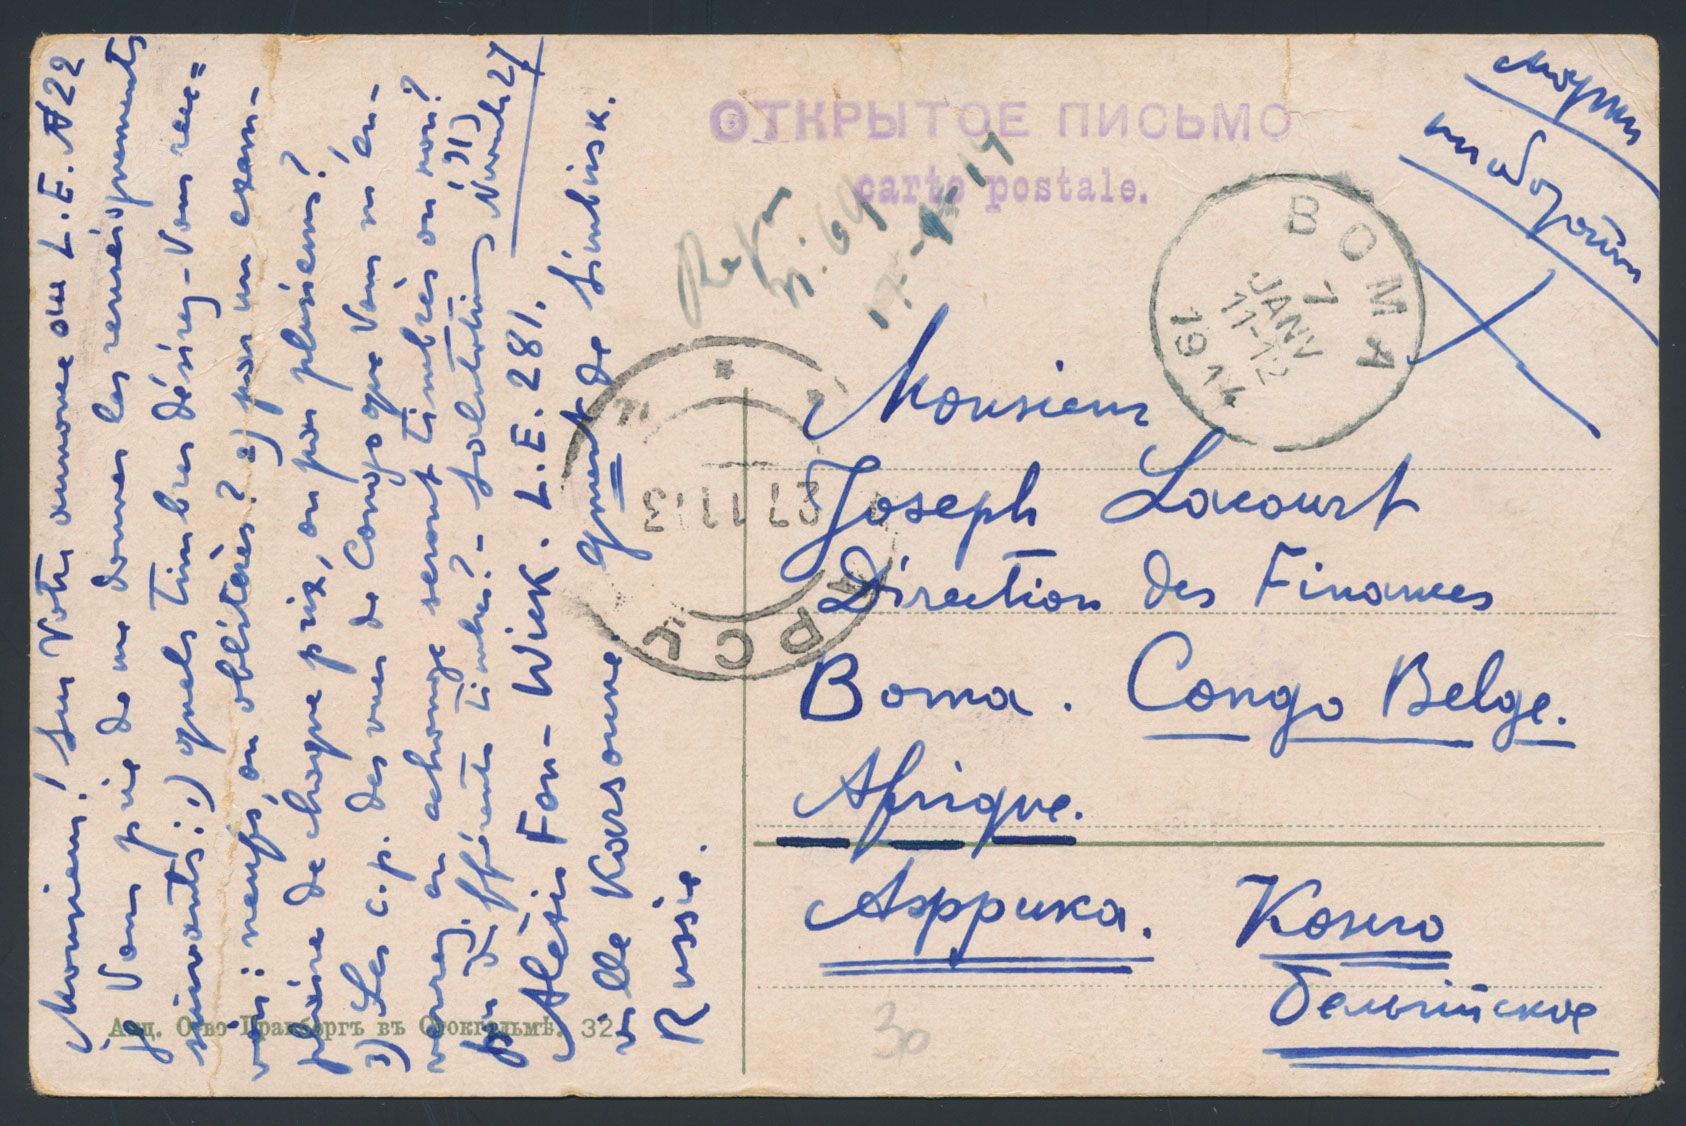 ОТКРЫТОЕ ПИСЬМО
carte postale.
марки
на обороте
BOMA
7
JANV
11-12
1914
27 11 13
Monsieur
Joseph Lacourt
Direction des Finances
Boma. Congo Belge.
Afrique.
Африка. Конго
Бельгiйское
30
Monsieur! Sur Votre annonce au L.E. № 22
je Vous prie de me donner les renseignements
suivants: 1) quels timbres désirez-Vous rece=
voir: neufs, ou oblitérés? 2) par un exem-
plaire de chaque prix, ou par plusieurs?
3) Les c.p. des vues de Congo que Vous m'en-
verrez en échange seront timbrés ou non?
par différents timbres? - Salutations
Novembre 27
Alexis Fon-Wick. L.E. 281.
ville Karsoune, gouvert de Simbirsk.
Russie.
Акц. О-во Гранбергъ въ Стокгольмѣ. 32